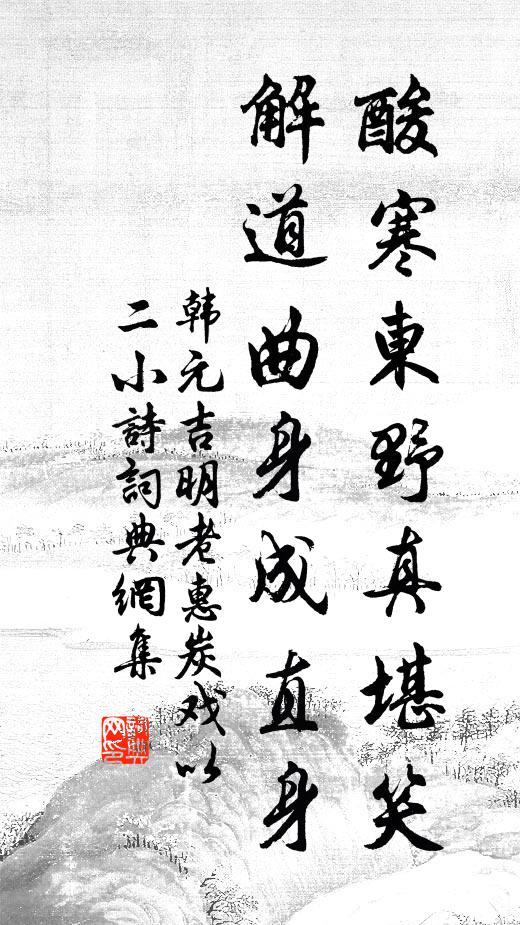 酸寒東野真堪笑
解道曲身成直身
韩元吉明老惠炭戏以
二小詩詞典網集